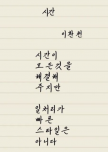 시간
이환천
시간이
모든것을
해결해
주지만
일처리가
빠른
스타일은
아니다